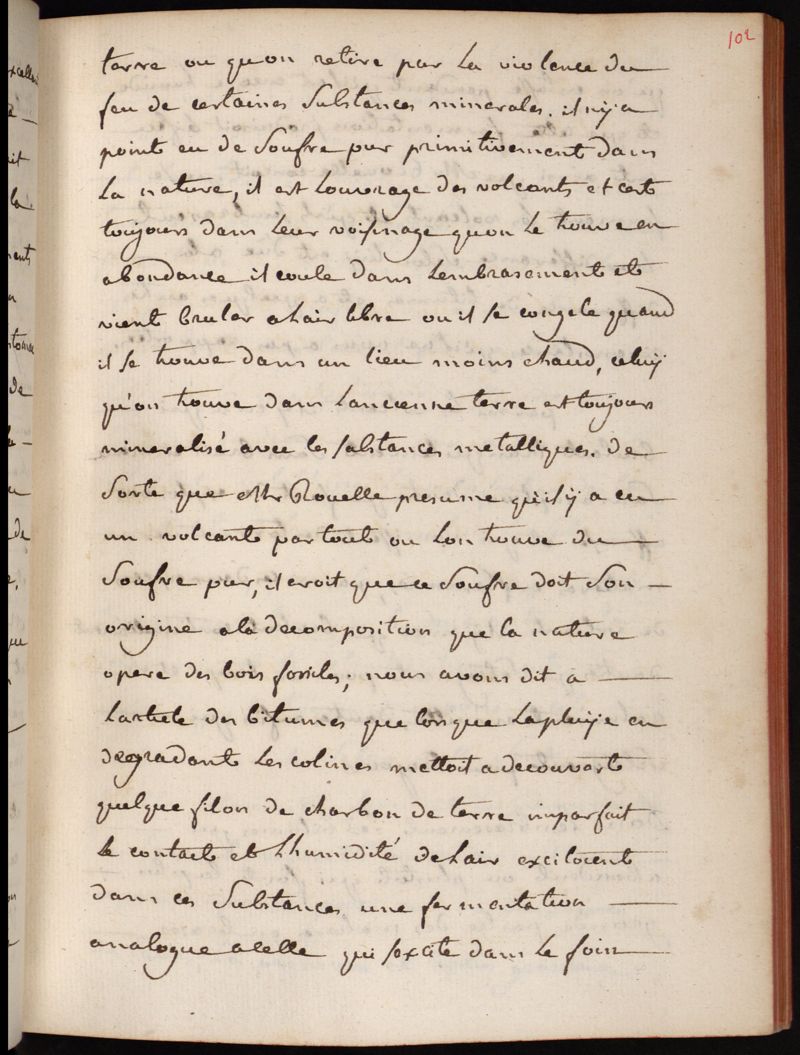 102
terre ou quon retire par la violence du
feu de certaines Substances minerales. il n'y a
point eu de Soufre pur primitivement dans
la nature, il est louvrage des volcants et cest
toujours dans leur voisinage quon le trouve en
abondance il coule dans lembrasement et
vient bruler alair libre ou il se congele quand
il se trouve dans un lieu moins chaud, celuy
qu'on trouve dans lancienne terre est toujours
mineralisé avec les substances metalliques. de
Sorte que Mr Rouelle presume qu'il y a eu
un volcant partout ou lon trouve du
Soufre pur, il croit que ce Soufre doit Son
origine ala decomposition que la nature
opere des bois fossiles; nous avons dit a
larticle des bitumes que lorsque la pluye en
degradant les colines mettoit a decouvert
quelque filon de charbon de terre imparfait
le contact et l'humidité delair excitoient
dans ces Substances une fermentation
analogue acelle qui sexcite dans le foin